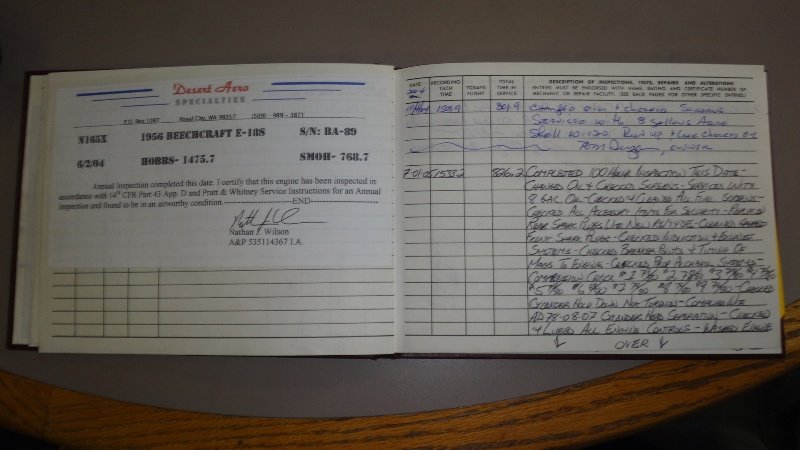 Desert Aero
SPECIALTIES
P.O. Box 1087 Royal City, WA 99357 (509)
N165X 1956 BEECHCRAFT E-18S S/N: BA-89
6/2/04 HOBBS- 1475.7 SMOH- 768.7
Annual Inspection completed this date. I certify that this engine has been inspected in
accordance with 14th CFR Part 43 App. D and Pratt & Whitney Service Instructions for an Annual
Inspection and found to be in an airworthy condition.----------END----------
Nathan J. Wilson
A&P 535114367 I.A.
DATE RECORDING TACH TIME TODAY'S FLIGHT TOTAL TIME IN SERVICE DESCRIPTION OF INSPECTIONS, TESTS, REPAIRS AND ALTERATIONS
ENTRIES MUST BE ENDORSED WITH NAME, RATING AND CERTIFICATE NUMBER OF
MECHANIC OR REPAIR FACILITY. (SEE BACK PAGES FOR OTHER SPECIFIC ENTRIES.)
Changed oil + checked screens
Serviced with 8 gallons Aero
Shell Run up + leak checked OK
Tom , owner
7-01-05 1533.2 826.2 Completed 100 Hour Inspection This Date -
Changed Oil & Checked Screens - Serviced With
8 Gal Oil - Checked & Cleaned All Fuel Screens -
Checked All Accessory Items For Security -
Rear Spark Plugs With New - Cleaned
Front Spark Plugs - Checked Induction & Exhaust
Systems - Checked Breaker Points & Timing Of
Mags To Engine - Checked Alcohol Systems -
Compression Check #1 #2 78/80 #3 #4
#5 #6 #7 #8 #9 - Checked
Cylinder Hold Down Nut Torques - Complied With
AD 78-08-07 Cylinder Head Seperation - Checked
& Lubed All Engine Controls - Washed Engine
↓ OVER ↓